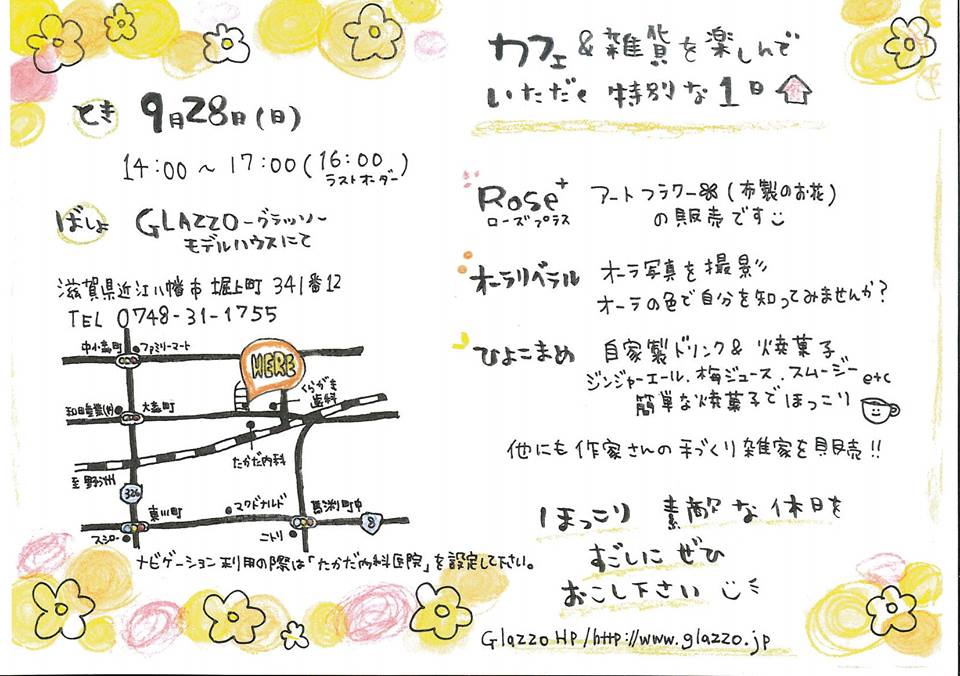 とき 9月28日(日)
14:00～17:00(16:00 ラストオーダー)
ばしょ GLAZZO-グラッソ-
モデルハウスにて
滋賀県近江八幡市堀上町341番12
TEL 0748-31-1755
中小森町
ファミリーマート
HERE
くらがき
歯科
大森町
たかだ内科
至野洲
326
東川町
マクドナルド
馬渕町中
8
スシロー
ニトリ
ナビゲーション利用の際は「たかだ内科医院」を設定して下さい。
カフェ&雑貨を楽しんで
いただく特別な1日
Rose+
ローズプラス
アートフラワー(布製のお花)
の販売です
オーラリベラル
オーラ写真を撮影!!
オーラの色で自分を知ってみませんか?
ひよこまめ
自家製ドリンク& 焼菓子
ジンジャーエール、梅ジュース、スムージー etc
簡単な焼菓子でほっこり
他にも作家さんの手づくり雑家を販売!!
ほっこり 素敵な休日を
すごしに ぜひ
おこし下さい
Glazzo HP/http://www.glazzo.jp